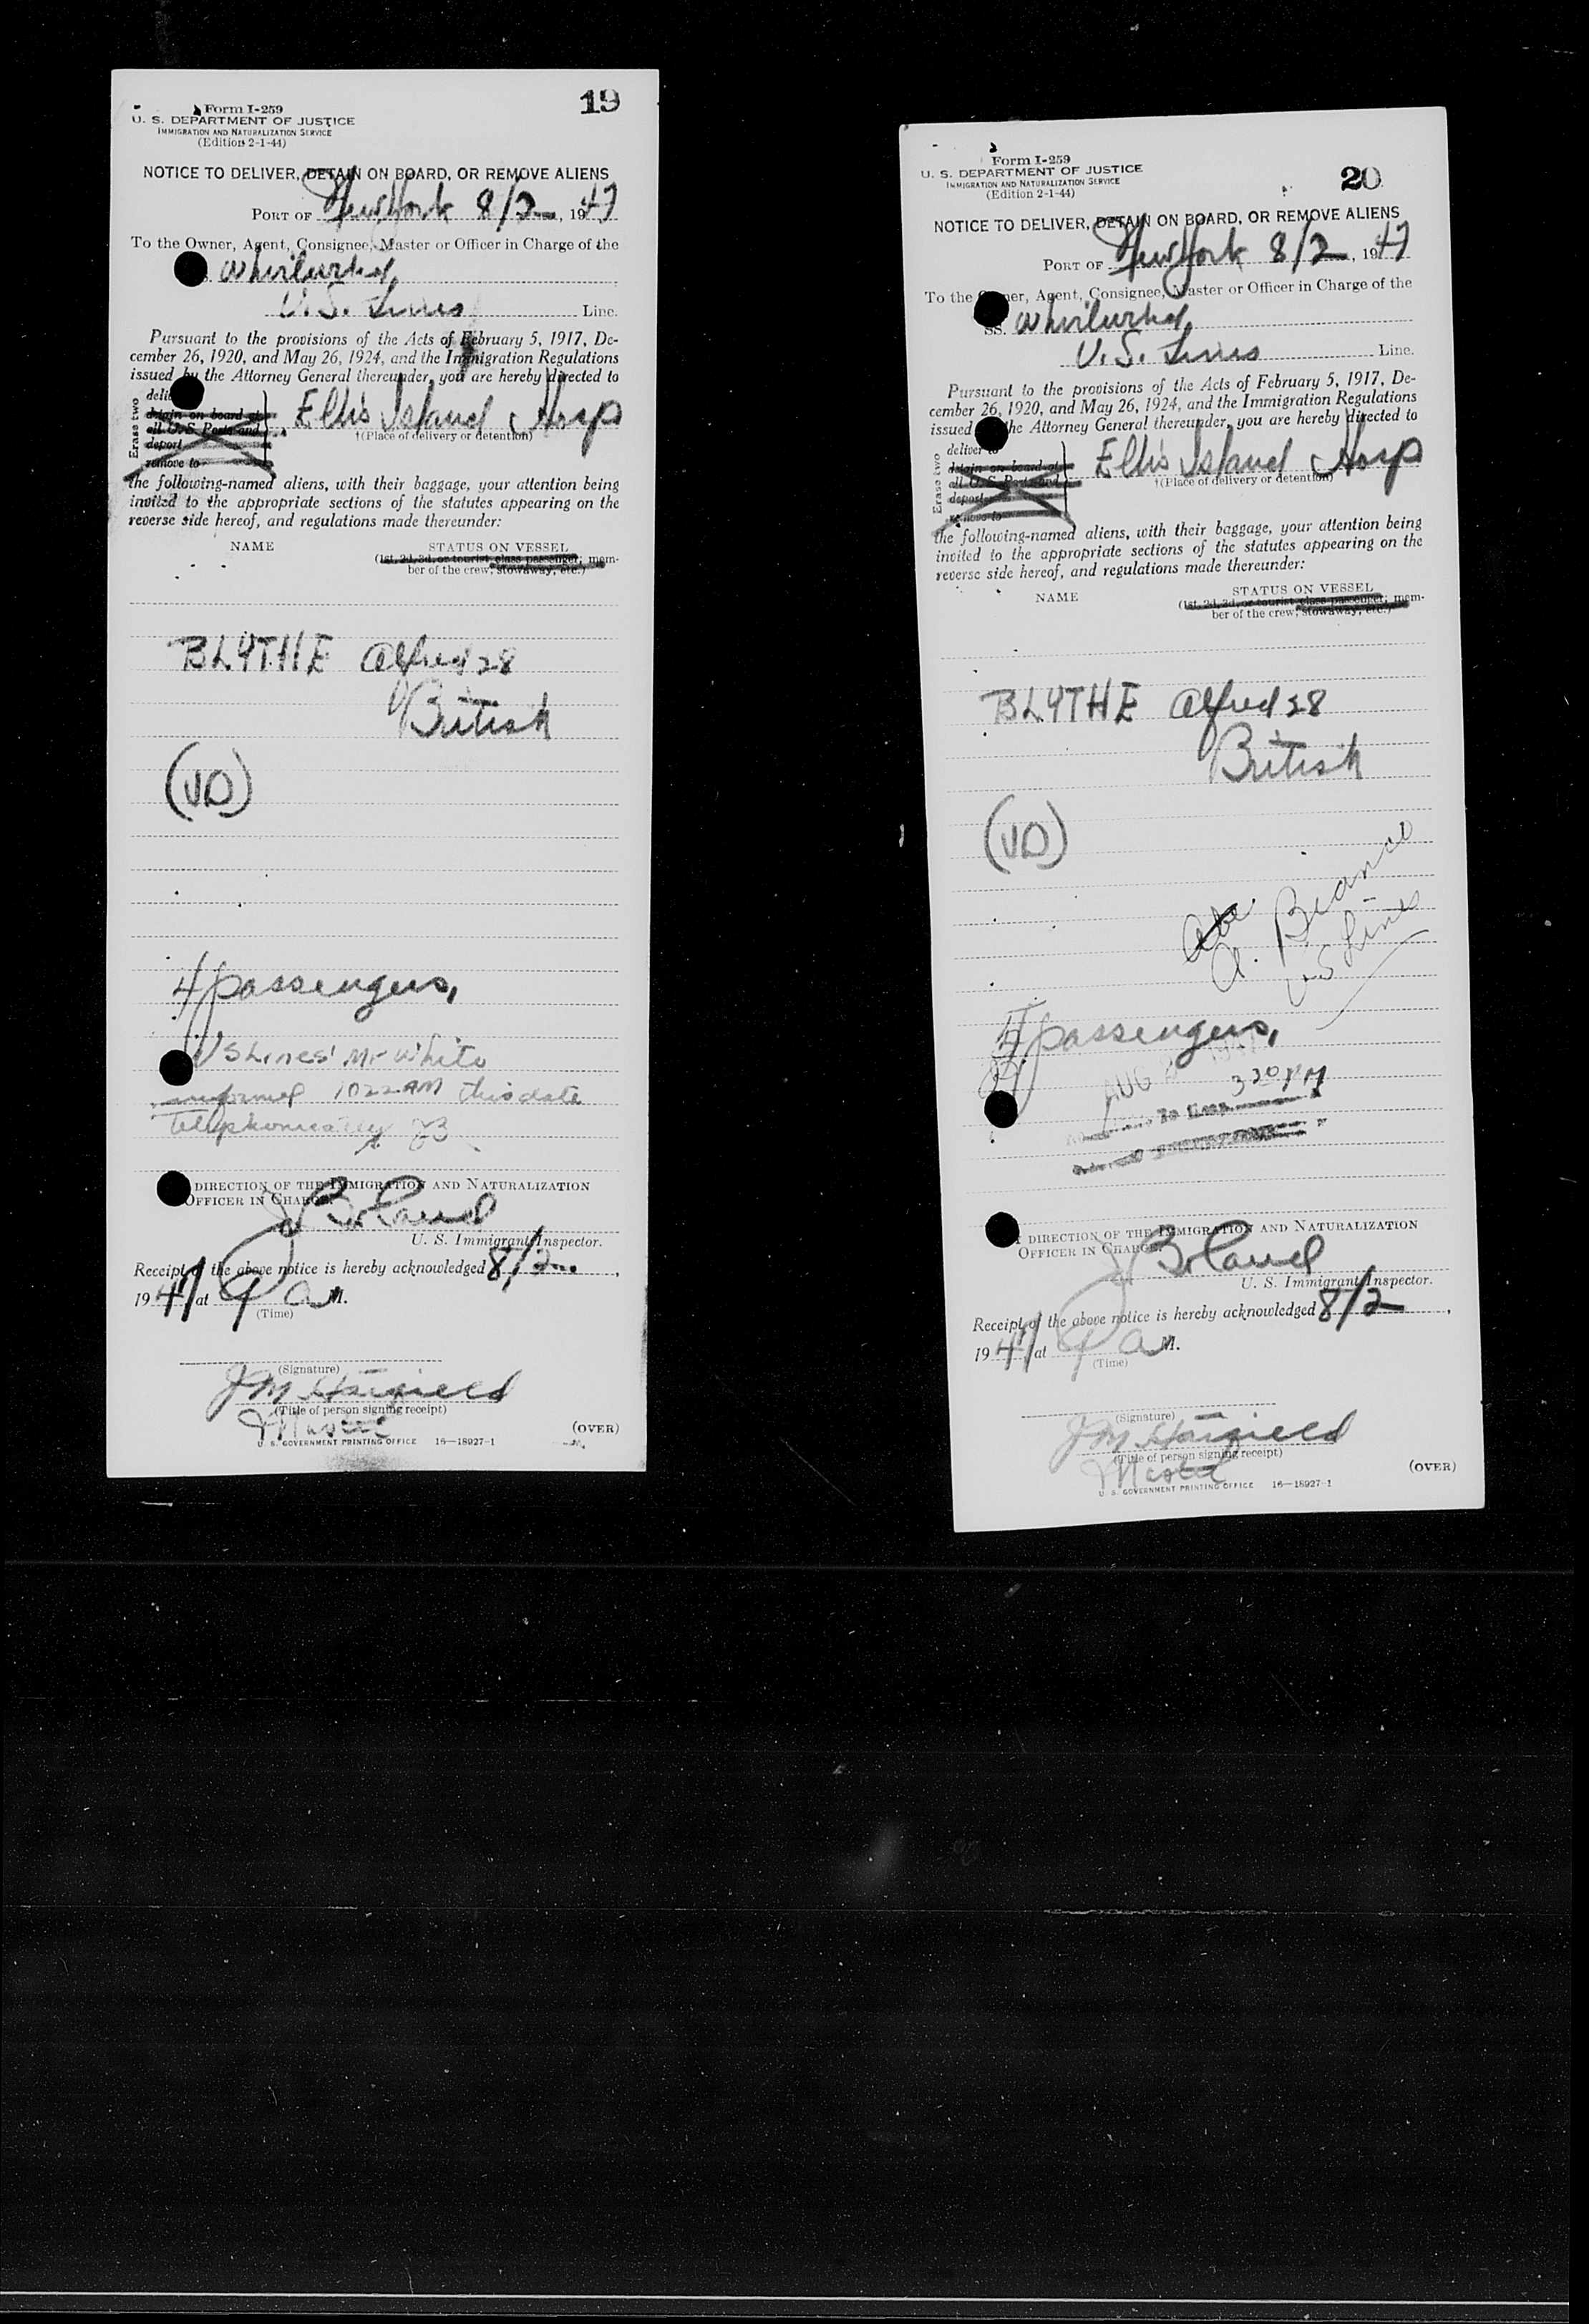 19
Form I-259
U. S. DEPARTMENT OF JUSTICE
IMMIGRATION AND NATURALIZATION SERVICE
(Edition 2-1-44)
NOTICE TO DELIVER, DETAIN ON BOARD, OR REMOVE ALIENS
PORT OF New York 8/2, 1947
To the Owner, Agent, Consignee, Master or Officer in Charge of the
U.S. Lines Line.
Pursuant to the provisions of the Acts of February 5, 1917, De-
cember 26, 1920, and May 26, 1924, and the Immigration Regulations
issued by the Attorney General thereunder, you are hereby directed to
Erase two
detain on board at
all U.S. Ports and
deport
remove to
Ellis Island Hosp
†(Place of delivery or detention)
the following-named aliens, with their baggage, your attention being
invited to the appropriate sections of the statutes appearing on the
reverse side hereof, and regulations made thereunder:
NAME STATUS ON VESSEL
(1st, 2d, 3d, or tourist class passenger, mem-
ber of the crew, stowaway, etc.)
BLYTHE Alfred 28
British
(VD)
4 passengers,
US Lines' Mr White
informed 1022 AM this date
Telephonically JB
DIRECTION OF THE IMMIGRATION AND NATURALIZATION
OFFICER IN CHARGE.
J Boland
U. S. Immigrant Inspector.
Receipt of the above notice is hereby acknowledged 8/2,
1947 at 9 A M.
(Time)
(Signature)
(Title of person signing receipt)
Master
(OVER)
U. S. GOVERNMENT PRINTING OFFICE 16—18927-1
20
Form I-259
U. S. DEPARTMENT OF JUSTICE
IMMIGRATION AND NATURALIZATION SERVICE
(Edition 2-1-44)
NOTICE TO DELIVER, DETAIN ON BOARD, OR REMOVE ALIENS
PORT OF New York 8/2, 1947
To the Owner, Agent, Consignee, Master or Officer in Charge of the
SS.
U.S. Lines Line.
Pursuant to the provisions of the Acts of February 5, 1917, De-
cember 26, 1920, and May 26, 1924, and the Immigration Regulations
issued the Attorney General thereunder, you are hereby directed to
Erase two
deliver to
detain on board at
all U.S. Ports and
deport
remove to
Ellis Island Hosp
†(Place of delivery or detention)
the following-named aliens, with their baggage, your attention being
invited to the appropriate sections of the statutes appearing on the
reverse side hereof, and regulations made thereunder:
NAME STATUS ON VESSEL
(1st, 2d, 3d, or tourist class passenger, mem-
ber of the crew, stowaway, etc.)
BLYTHE Alfred 28
British
(VD)
A. Bianco
US Lines
passengers,
AUG
3 20 PM
DIRECTION OF THE IMMIGRATION AND NATURALIZATION
OFFICER IN CHARGE.
J Boland
U. S. Immigrant Inspector.
Receipt of the above notice is hereby acknowledged 8/2,
1947 at 9 A M.
(Time)
(Signature)
(Title of person signing receipt)
Master
(OVER)
U. S. GOVERNMENT PRINTING OFFICE 16—18927-1